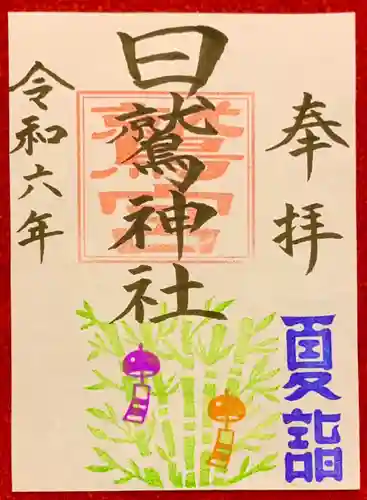 奉拝
日鷲神社
鷲宮
令和六年
夏詣